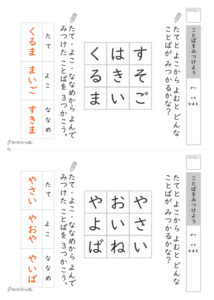 ことばをみつけよう
たてと よこから よむと どんな
ことばが みつかるかな？
すそご
はきい
くるま
たて・よこ・ななめから よんで
みつけた ことばを 3つかこう。
たて
よこ
ななめ
くるま
まいご
すきま
ことばをみつけよう
たてと よこから よむと どんな
ことばが みつかるかな？
やさい
おいね
やよば
たて・よこ・ななめから よんで
みつけた ことばを 3つかこう。
たて
よこ
ななめ
やさい
やおや
やいば